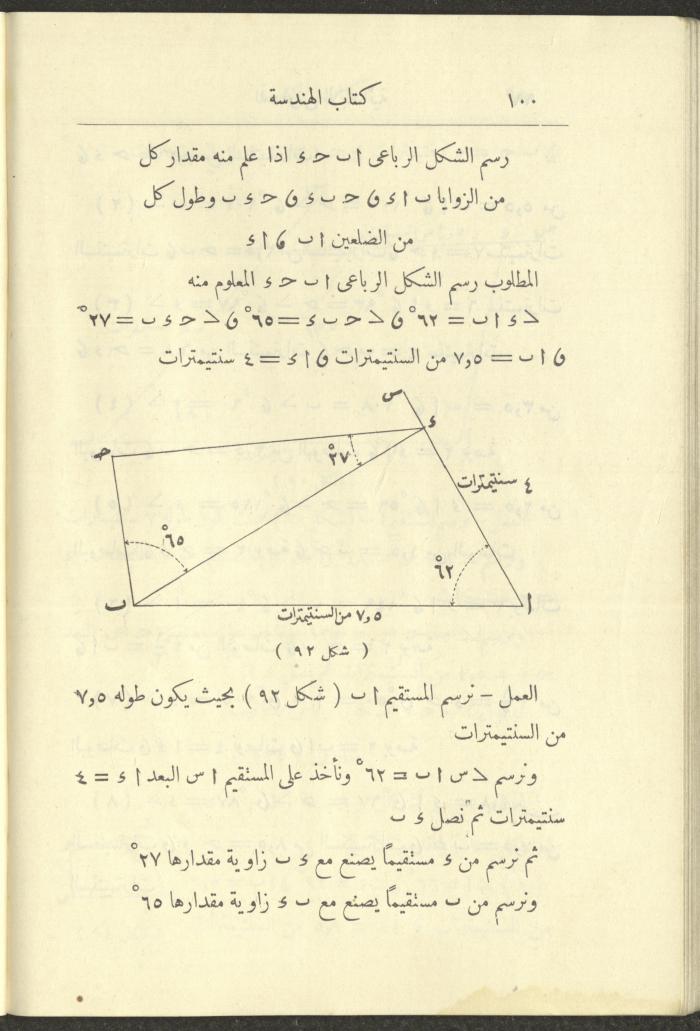 ١٠٠ كتاب الهندسة
رسم الشكل الرباعى ا ب ح ء اذا علم منه مقدار كل
من الزوايا ب ا ء و ح ب ء و ح ء ب وطول كل
من الضلعين ا ب و ا ء
المطلوب رسم الشكل الرباعى ا ب ح ء المعلوم منه
∠ ء ا ب = ٦٢° و ∠ ح ب ء = ٦٥° و ∠ ح ء ب = ٢٧°
و ا ب = ٧٫٥ من السنتيمترات و ا ء = ٤ سنتيمترات
س
ء
ح
٢٧°
٤ سنتيمترات
٦٥°
٦٢°
ا
ب
٧٫٥ من السنتيمترات
( شكل ٩٢ )
العمل – نرسم المستقيم ا ب ( شكل ٩٢ ) بحيث يكون طوله ٧٫٥
من السنتيمترات
ونرسم ∠ س ا ب = ٦٢° ونأخذ على المستقيم ا س البعد ا ء = ٤
سنتيمترات ثم نصل ء ب
ثم نرسم من ء مستقيماً يصنع مع ء ب زاوية مقدارها ٢٧°
ونرسم من ب مستقيماً يصنع مع ب ء زاوية مقدارها ٦٥°